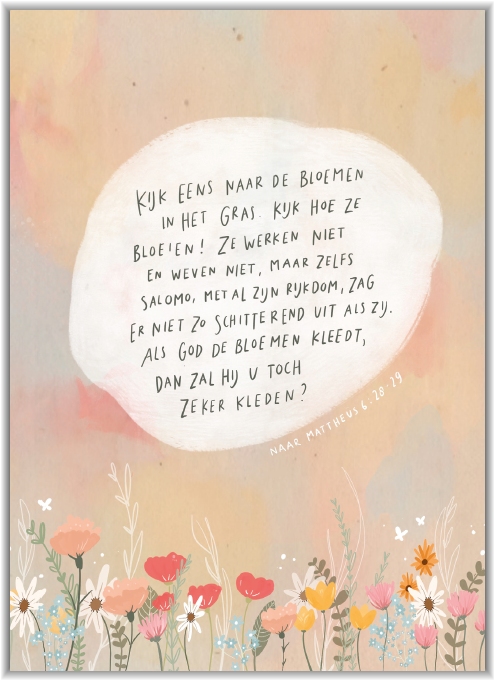 Kijk eens naar de bloemen
in het gras. Kijk hoe ze
bloeien! Ze werken niet
en weven niet, maar zelfs
Salomo, met al zijn rijkdom, zag
er niet zo schitterend uit als zij.
Als God de bloemen kleedt,
dan zal Hij u toch
zeker kleden?
naar Mattheus 6:28-29